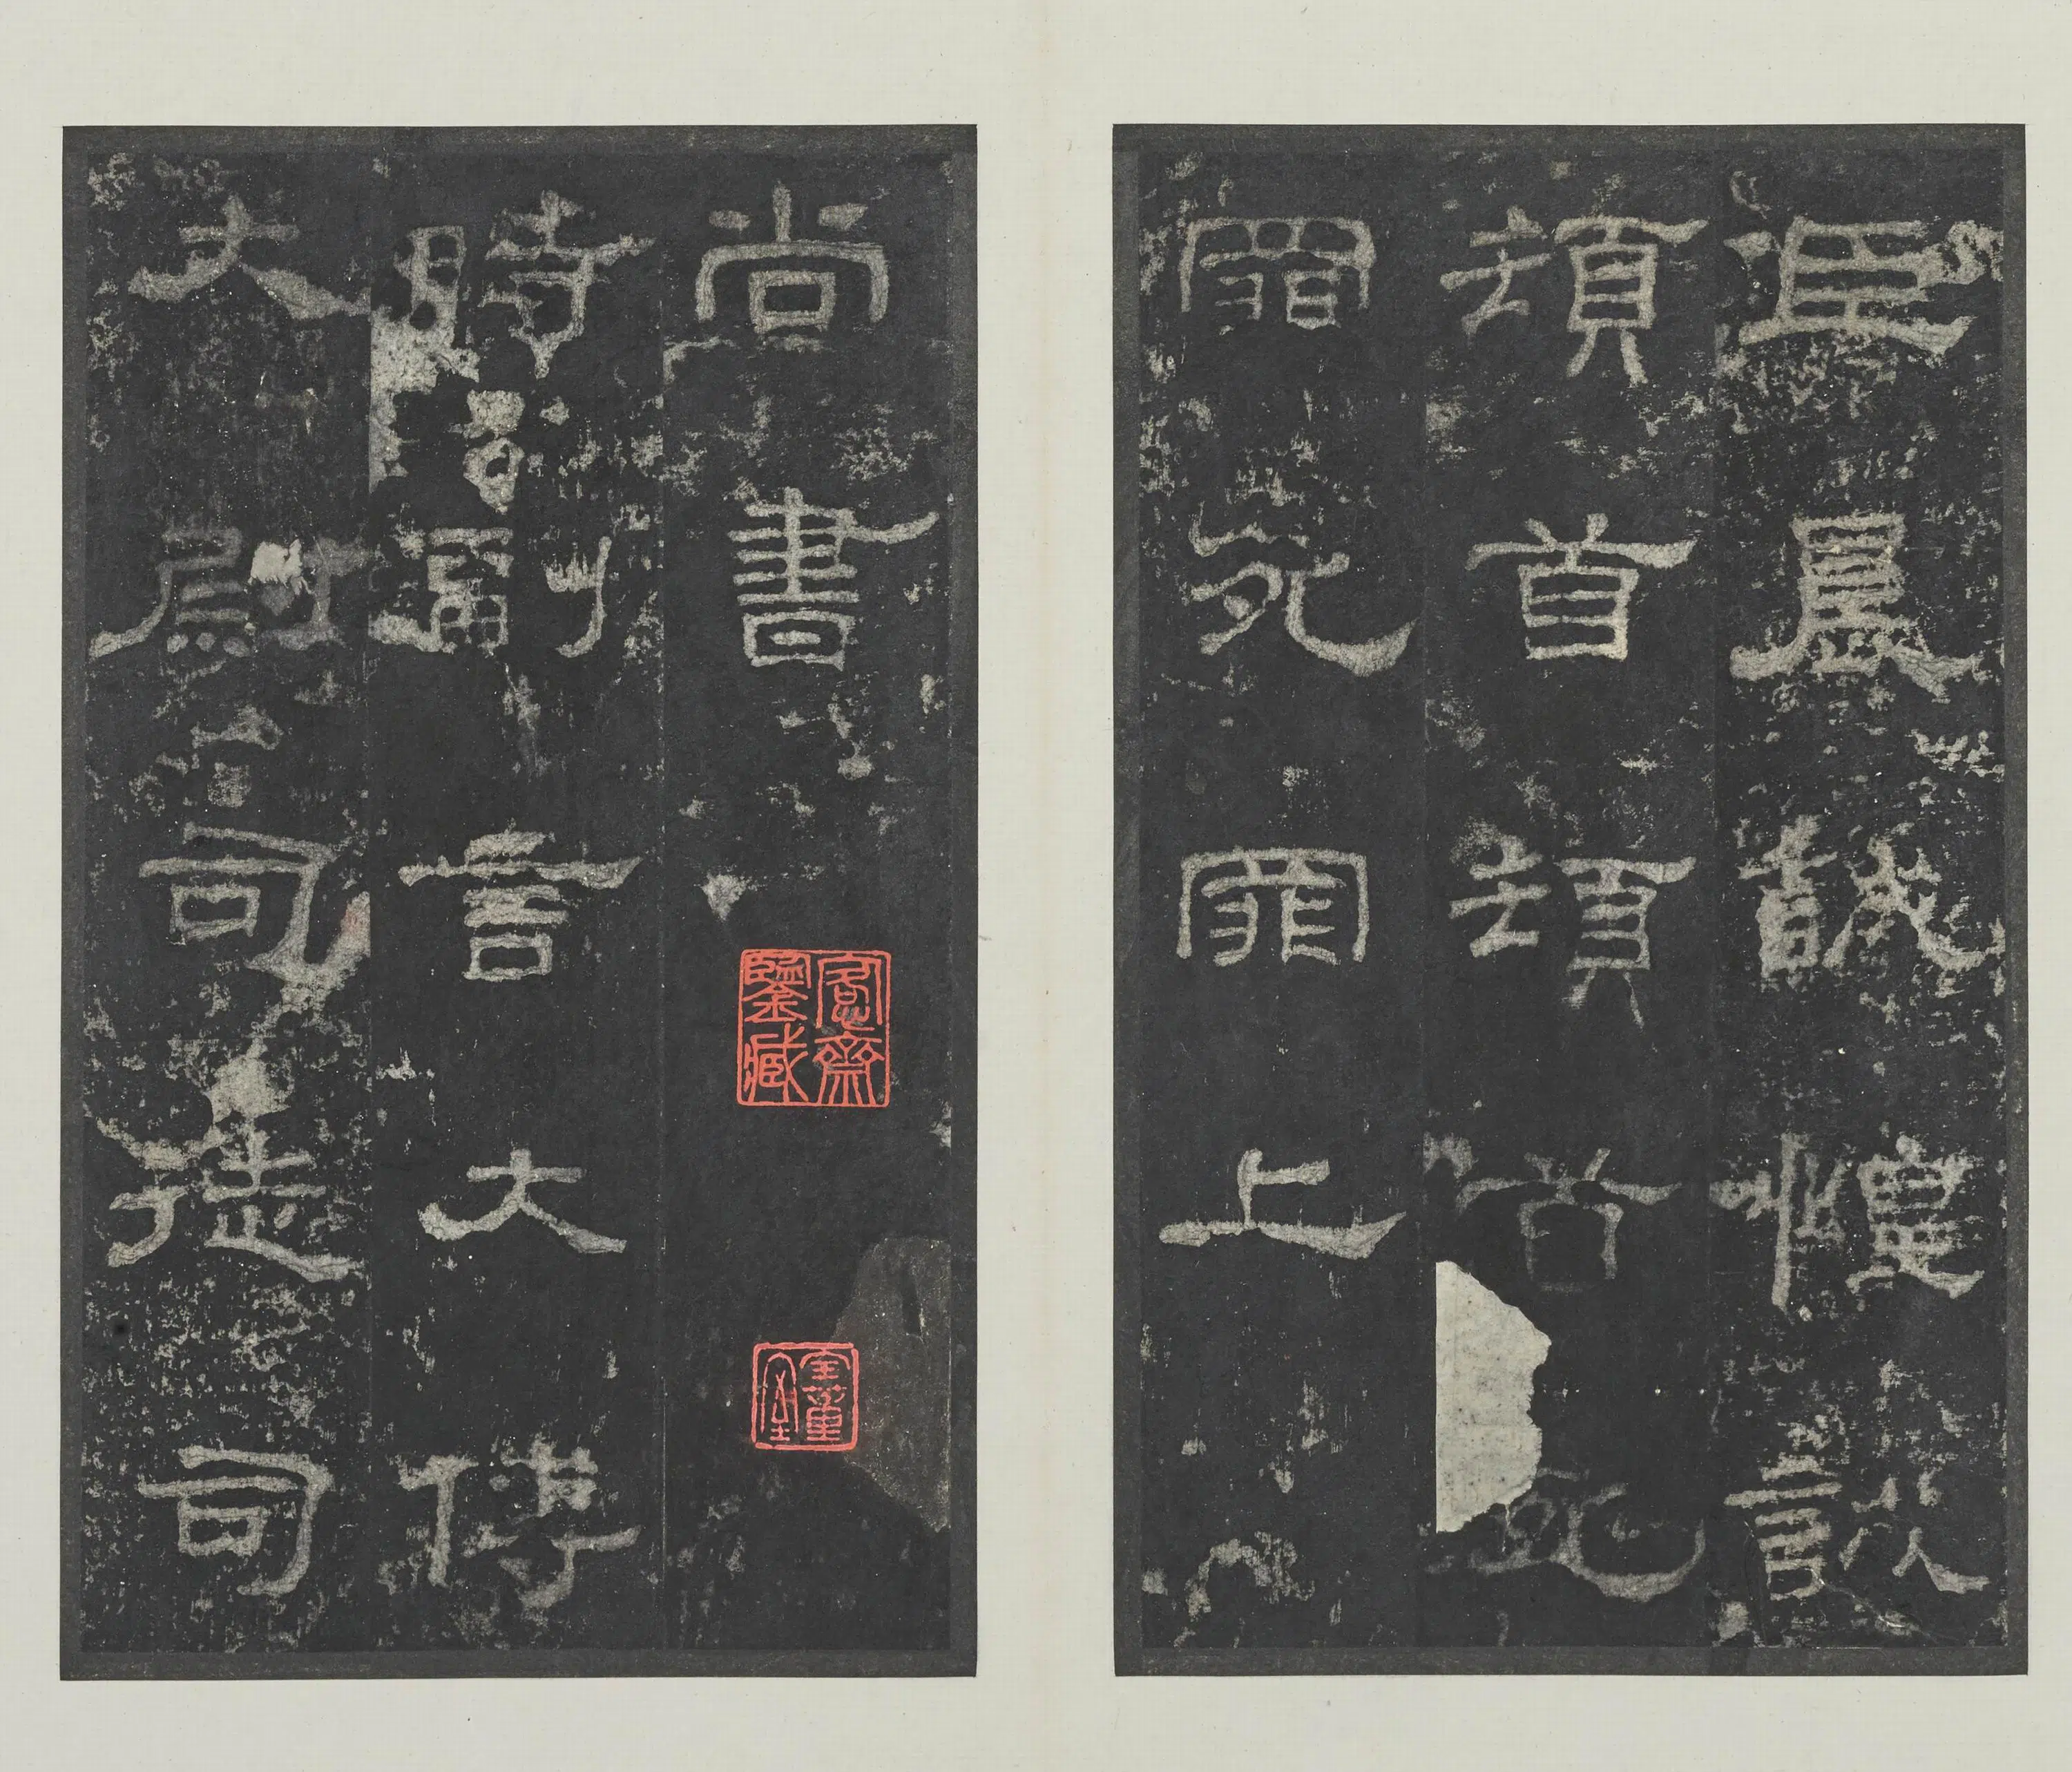 臣晨誠惶誠
頓首頓首死
罪死罪上
尚書
愙齋鑒藏
時副言大傅
大尉司徒司